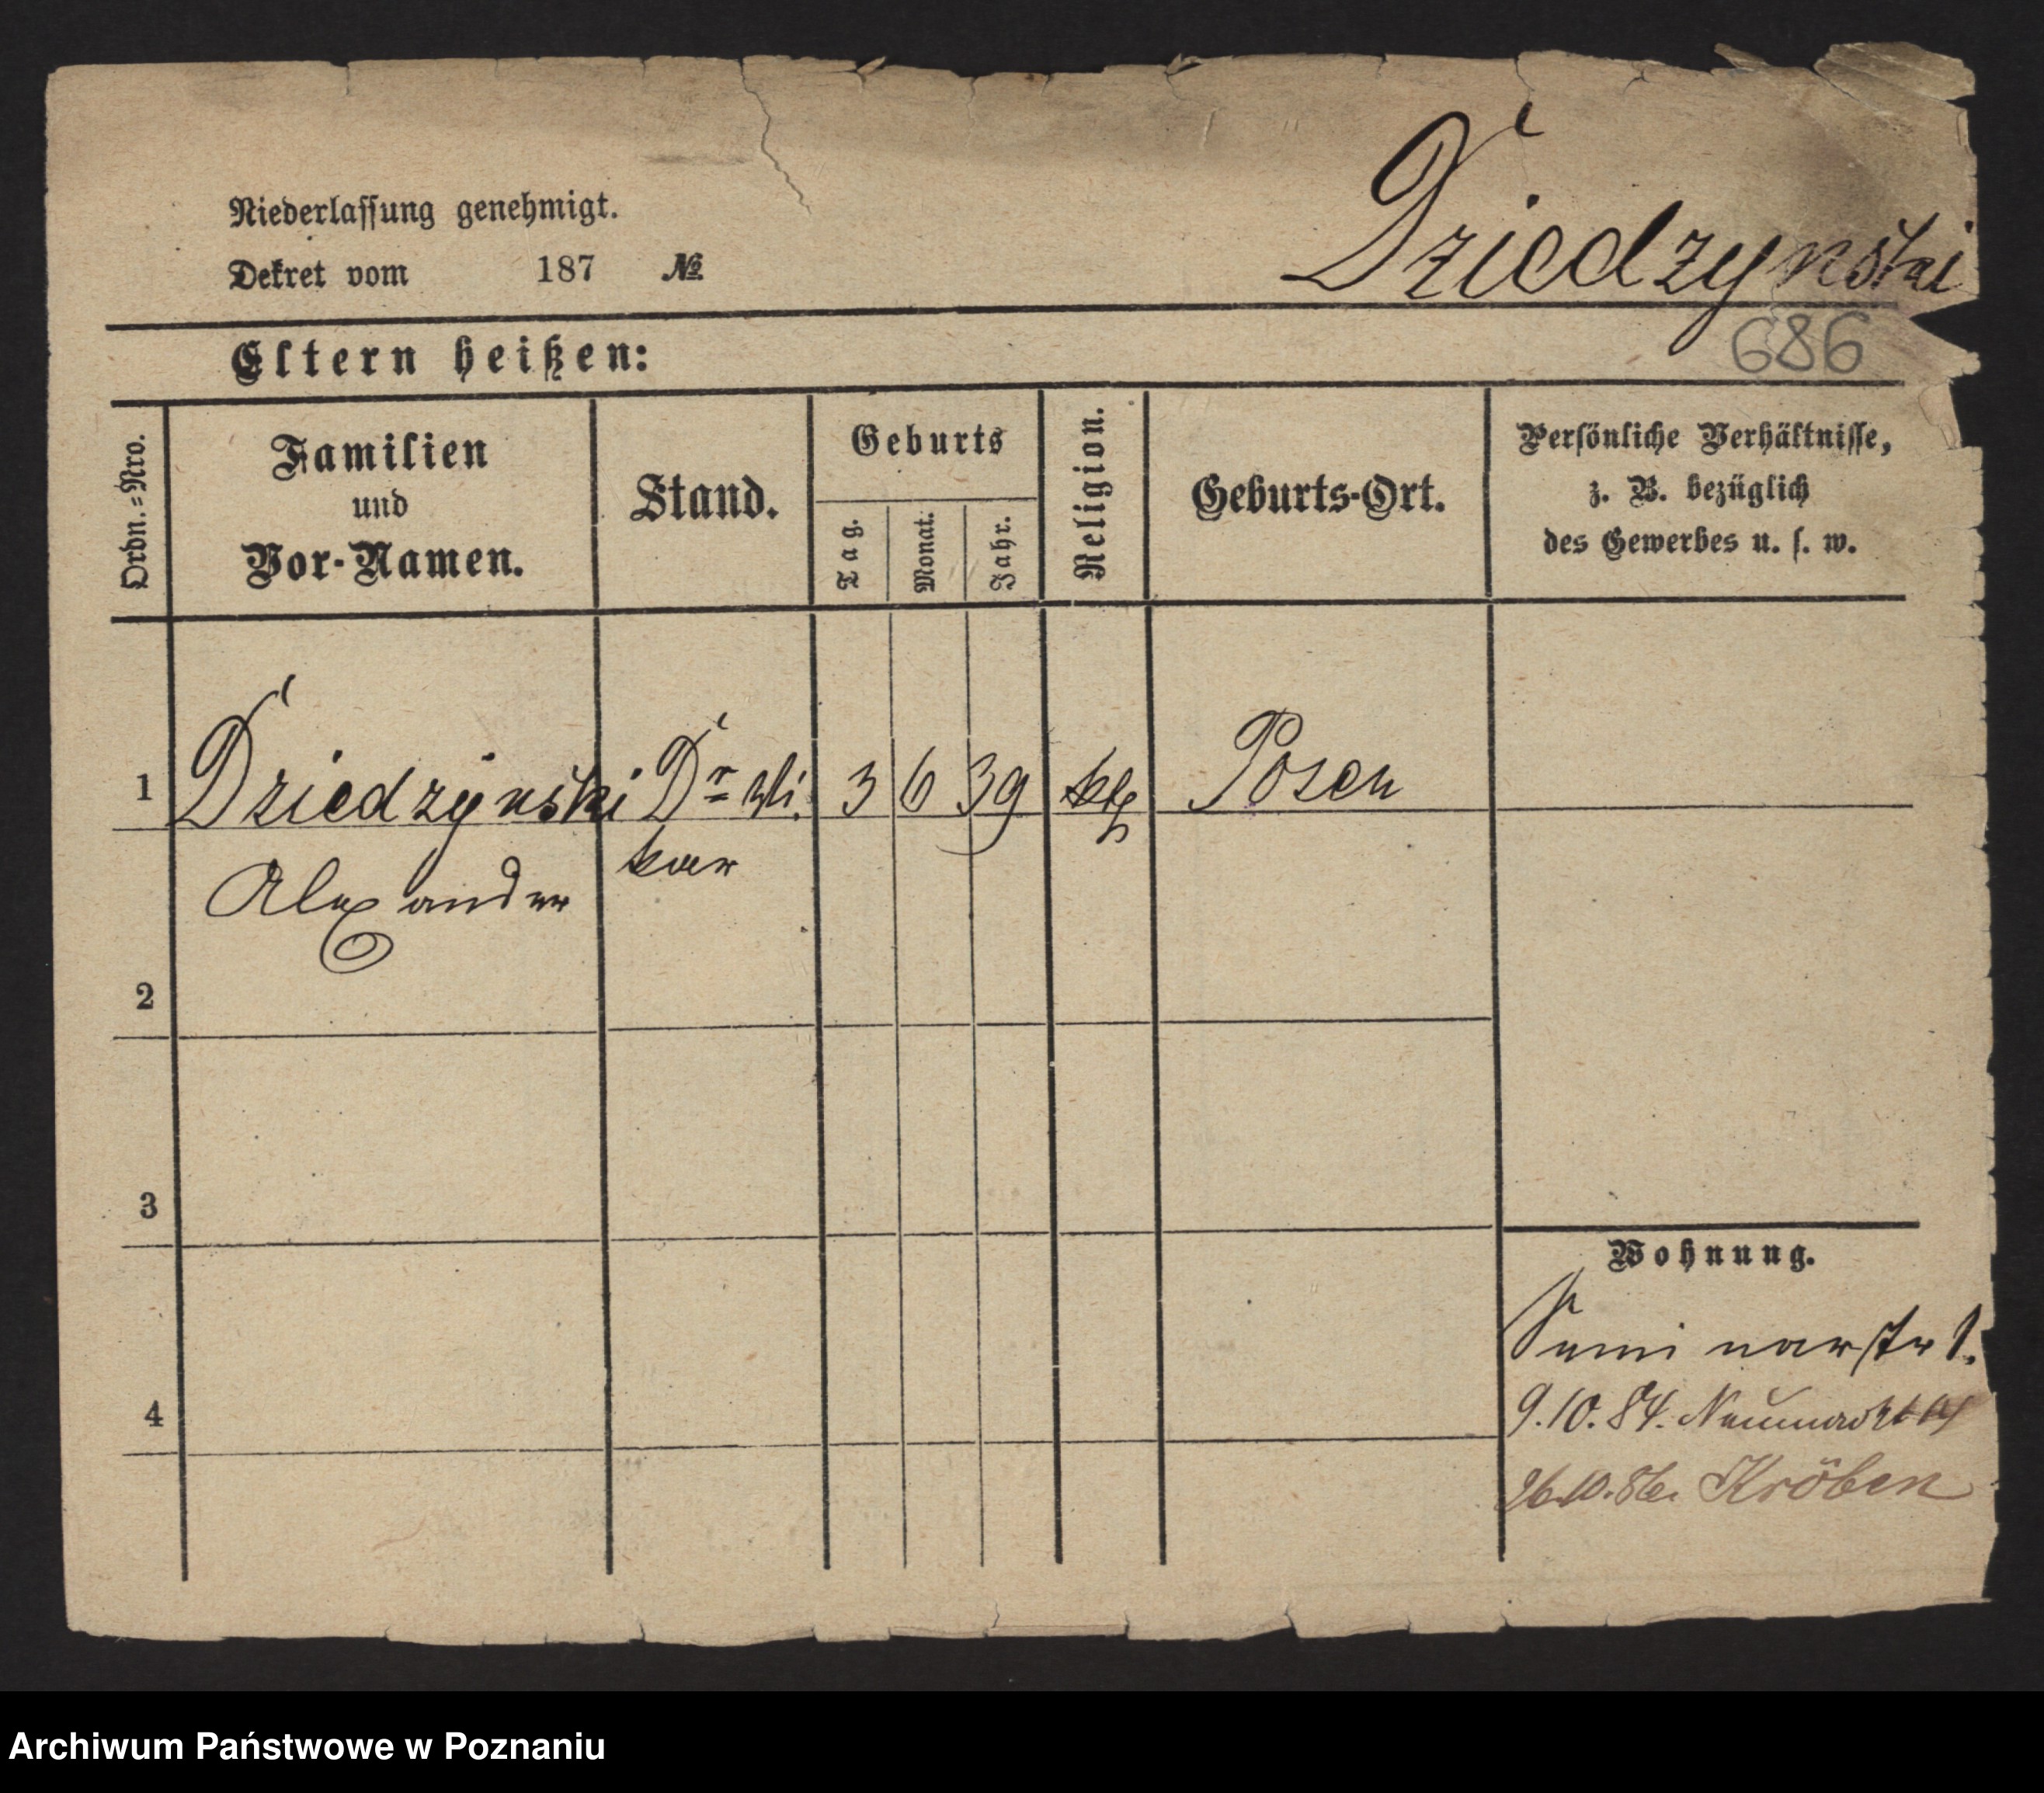 Niederlassung genehmigt.
Dekret vom 187 №
Dziedzynski
686
Eltern heißen:
Ordn.=Nro.
Familien
und
Vor-Namen.
Stand.
Geburts
Tag.
Monat.
Jahr.
Religion.
Geburts-Ort.
Persönliche Verhältnisse,
z. B. bezüglich
des Gewerbes u. s. w.
1 Dziedzynski Dr Vi 3 6 39 kth Posen
Alexander kar
2
3
4
Wohnung.
Seminarstr 1.
9.10.84. Neumarkt
26.10.86. Kröben
Archiwum Państwowe w Poznaniu